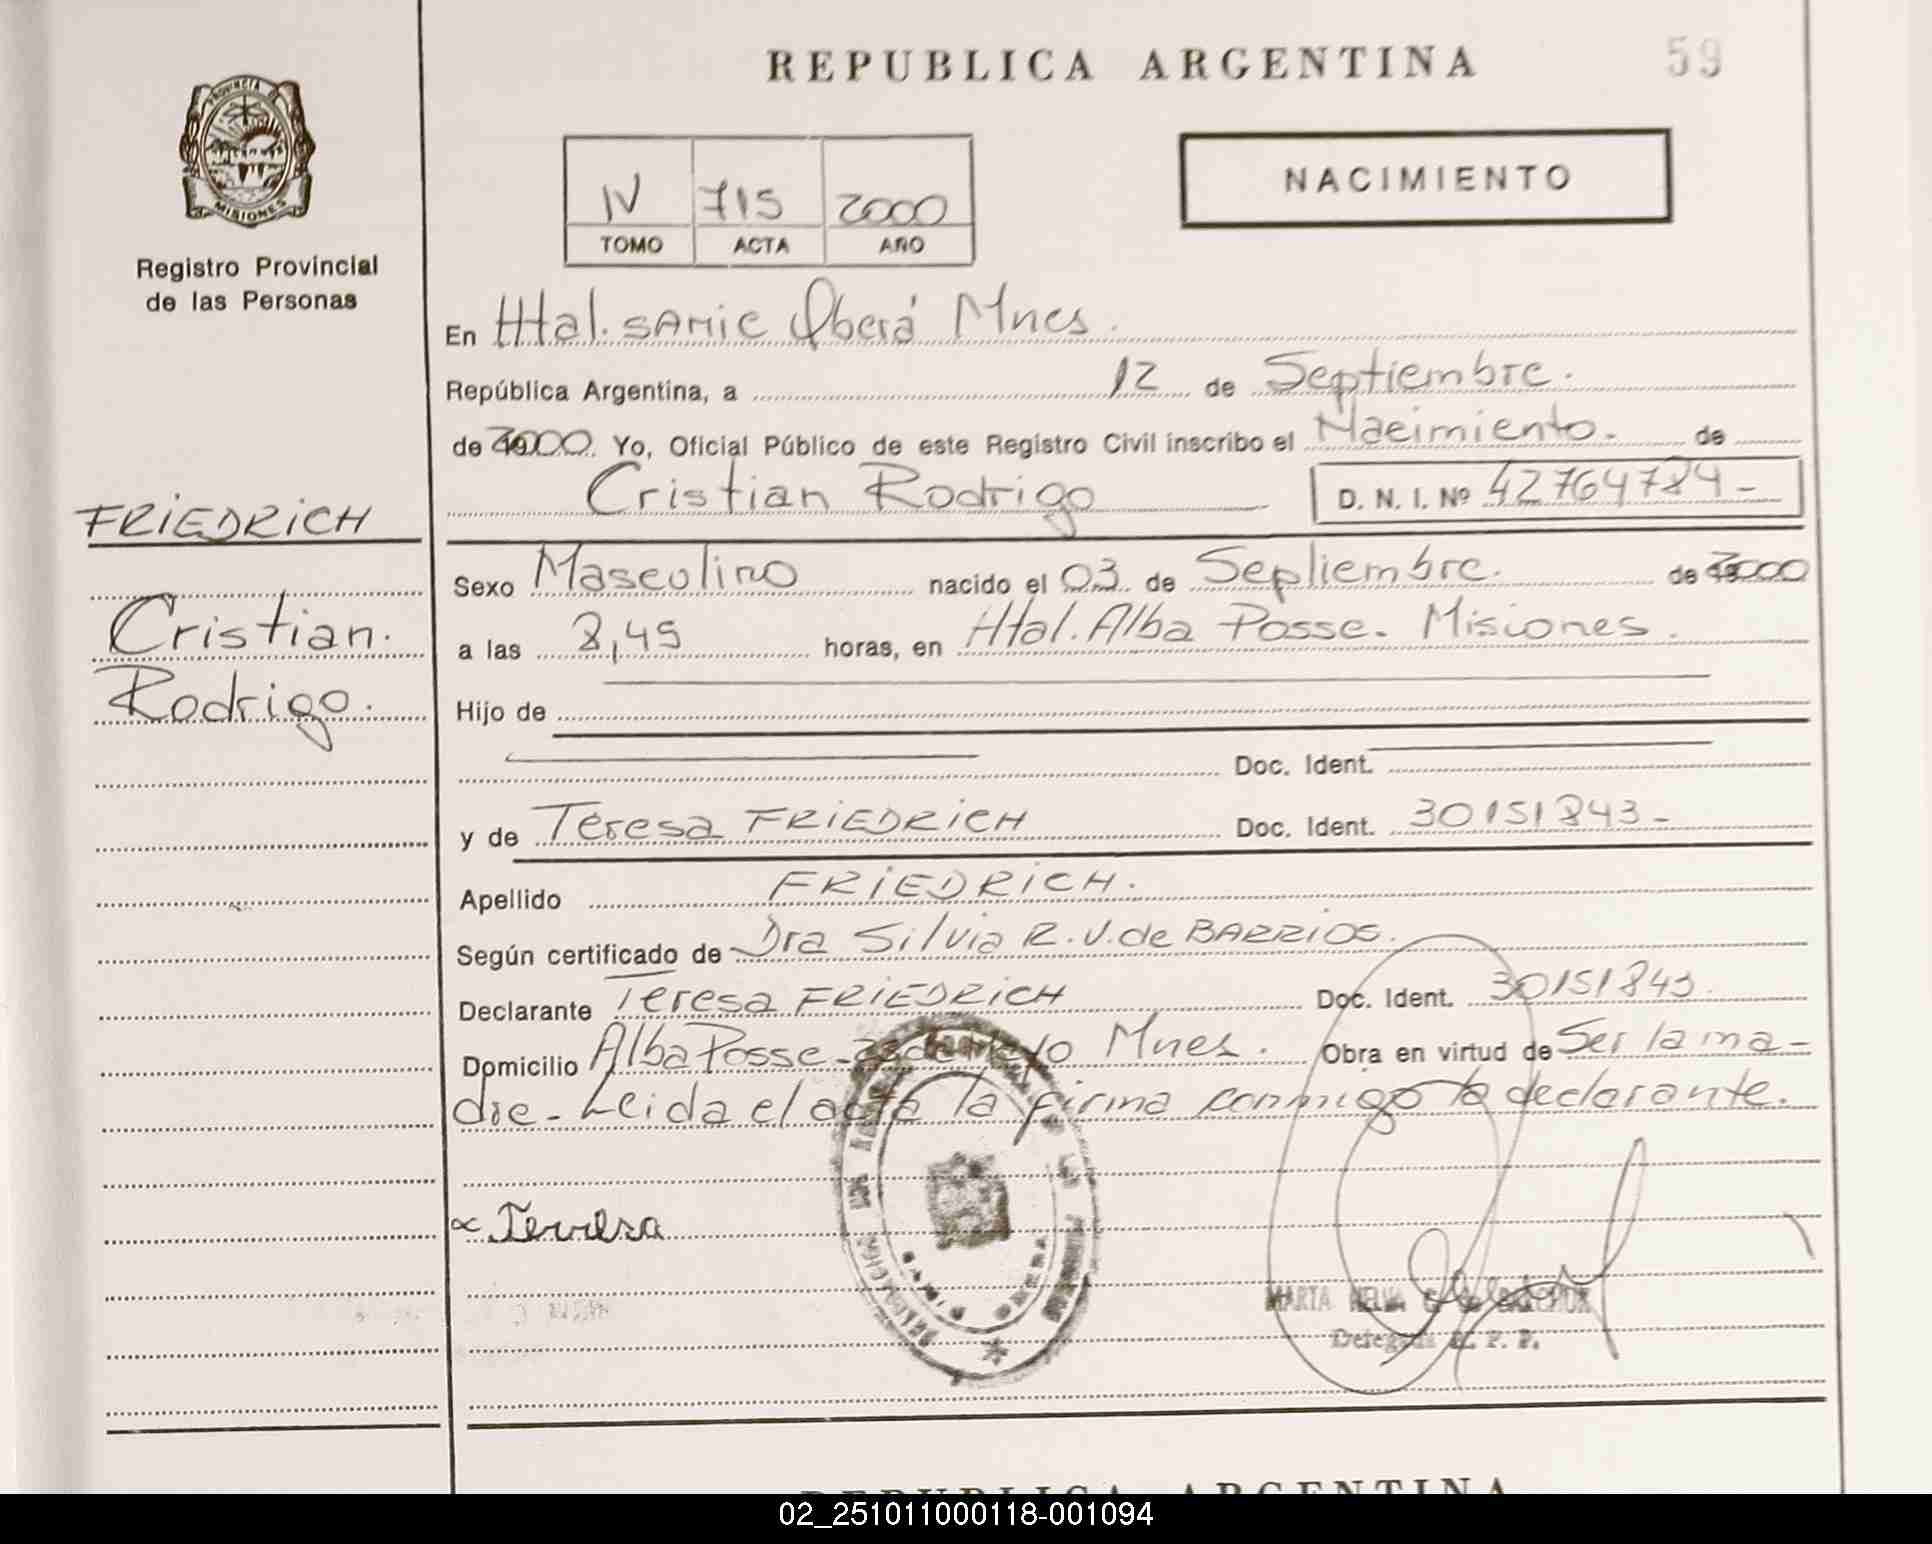 REPUBLICA ARGENTINA
59
PROVINCIA DE
MISIONES
Registro Provincial
de las Personas
IV 715 2000
TOMO ACTA AÑO
NACIMIENTO
En Htal. SAMIC Oberá Mnes.
República Argentina, a 12 de Septiembre.
de 2000 Yo, Oficial Público de este Registro Civil inscribo el Nacimiento. de
Cristian Rodrigo D. N. I. Nº 42764784-
FRIEDRICH
Cristian.
Rodrigo.
Sexo Masculino nacido el 03 de Septiembre. de 2000
a las 8,45 horas, en Htal. Alba Posse. Misiones.
Hijo de
Doc. Ident.
y de Teresa FRIEDRICH Doc. Ident. 30151843-
Apellido FRIEDRICH.
Según certificado de Dra Silvia R.V. de BARRIOS.
Declarante Teresa FRIEDRICH Doc. Ident. 30151843.
Domicilio Alba Posse- Mnes. Obra en virtud de Ser la ma-
dre- Leida el acta la firma conmigo la declarante.
Teresa
MARTA
Delegada R. P. P.
REPUBLICA ARGENTINA
02_251011000118-001094